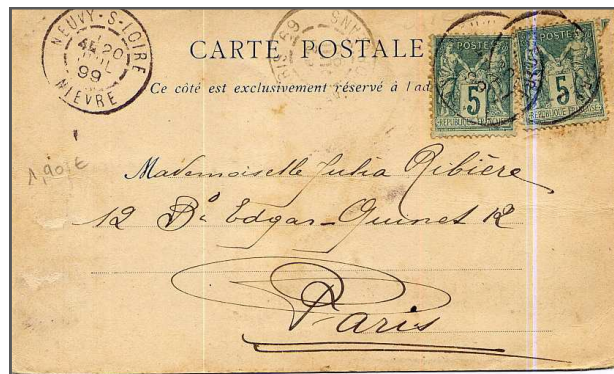 NEUVY-S-LOIRE
20
99
NIEVRE
CARTE POSTALE
Ce côté est exclusivement réservé à l'ad
POSTES
5
REPUBLIQUE FRANÇAISE
POSTES
5
REPUBLIQUE FRANÇAISE
1,90 €
Mademoiselle Julia Ribière
12 Bd Edgar-Quinet 12
Paris